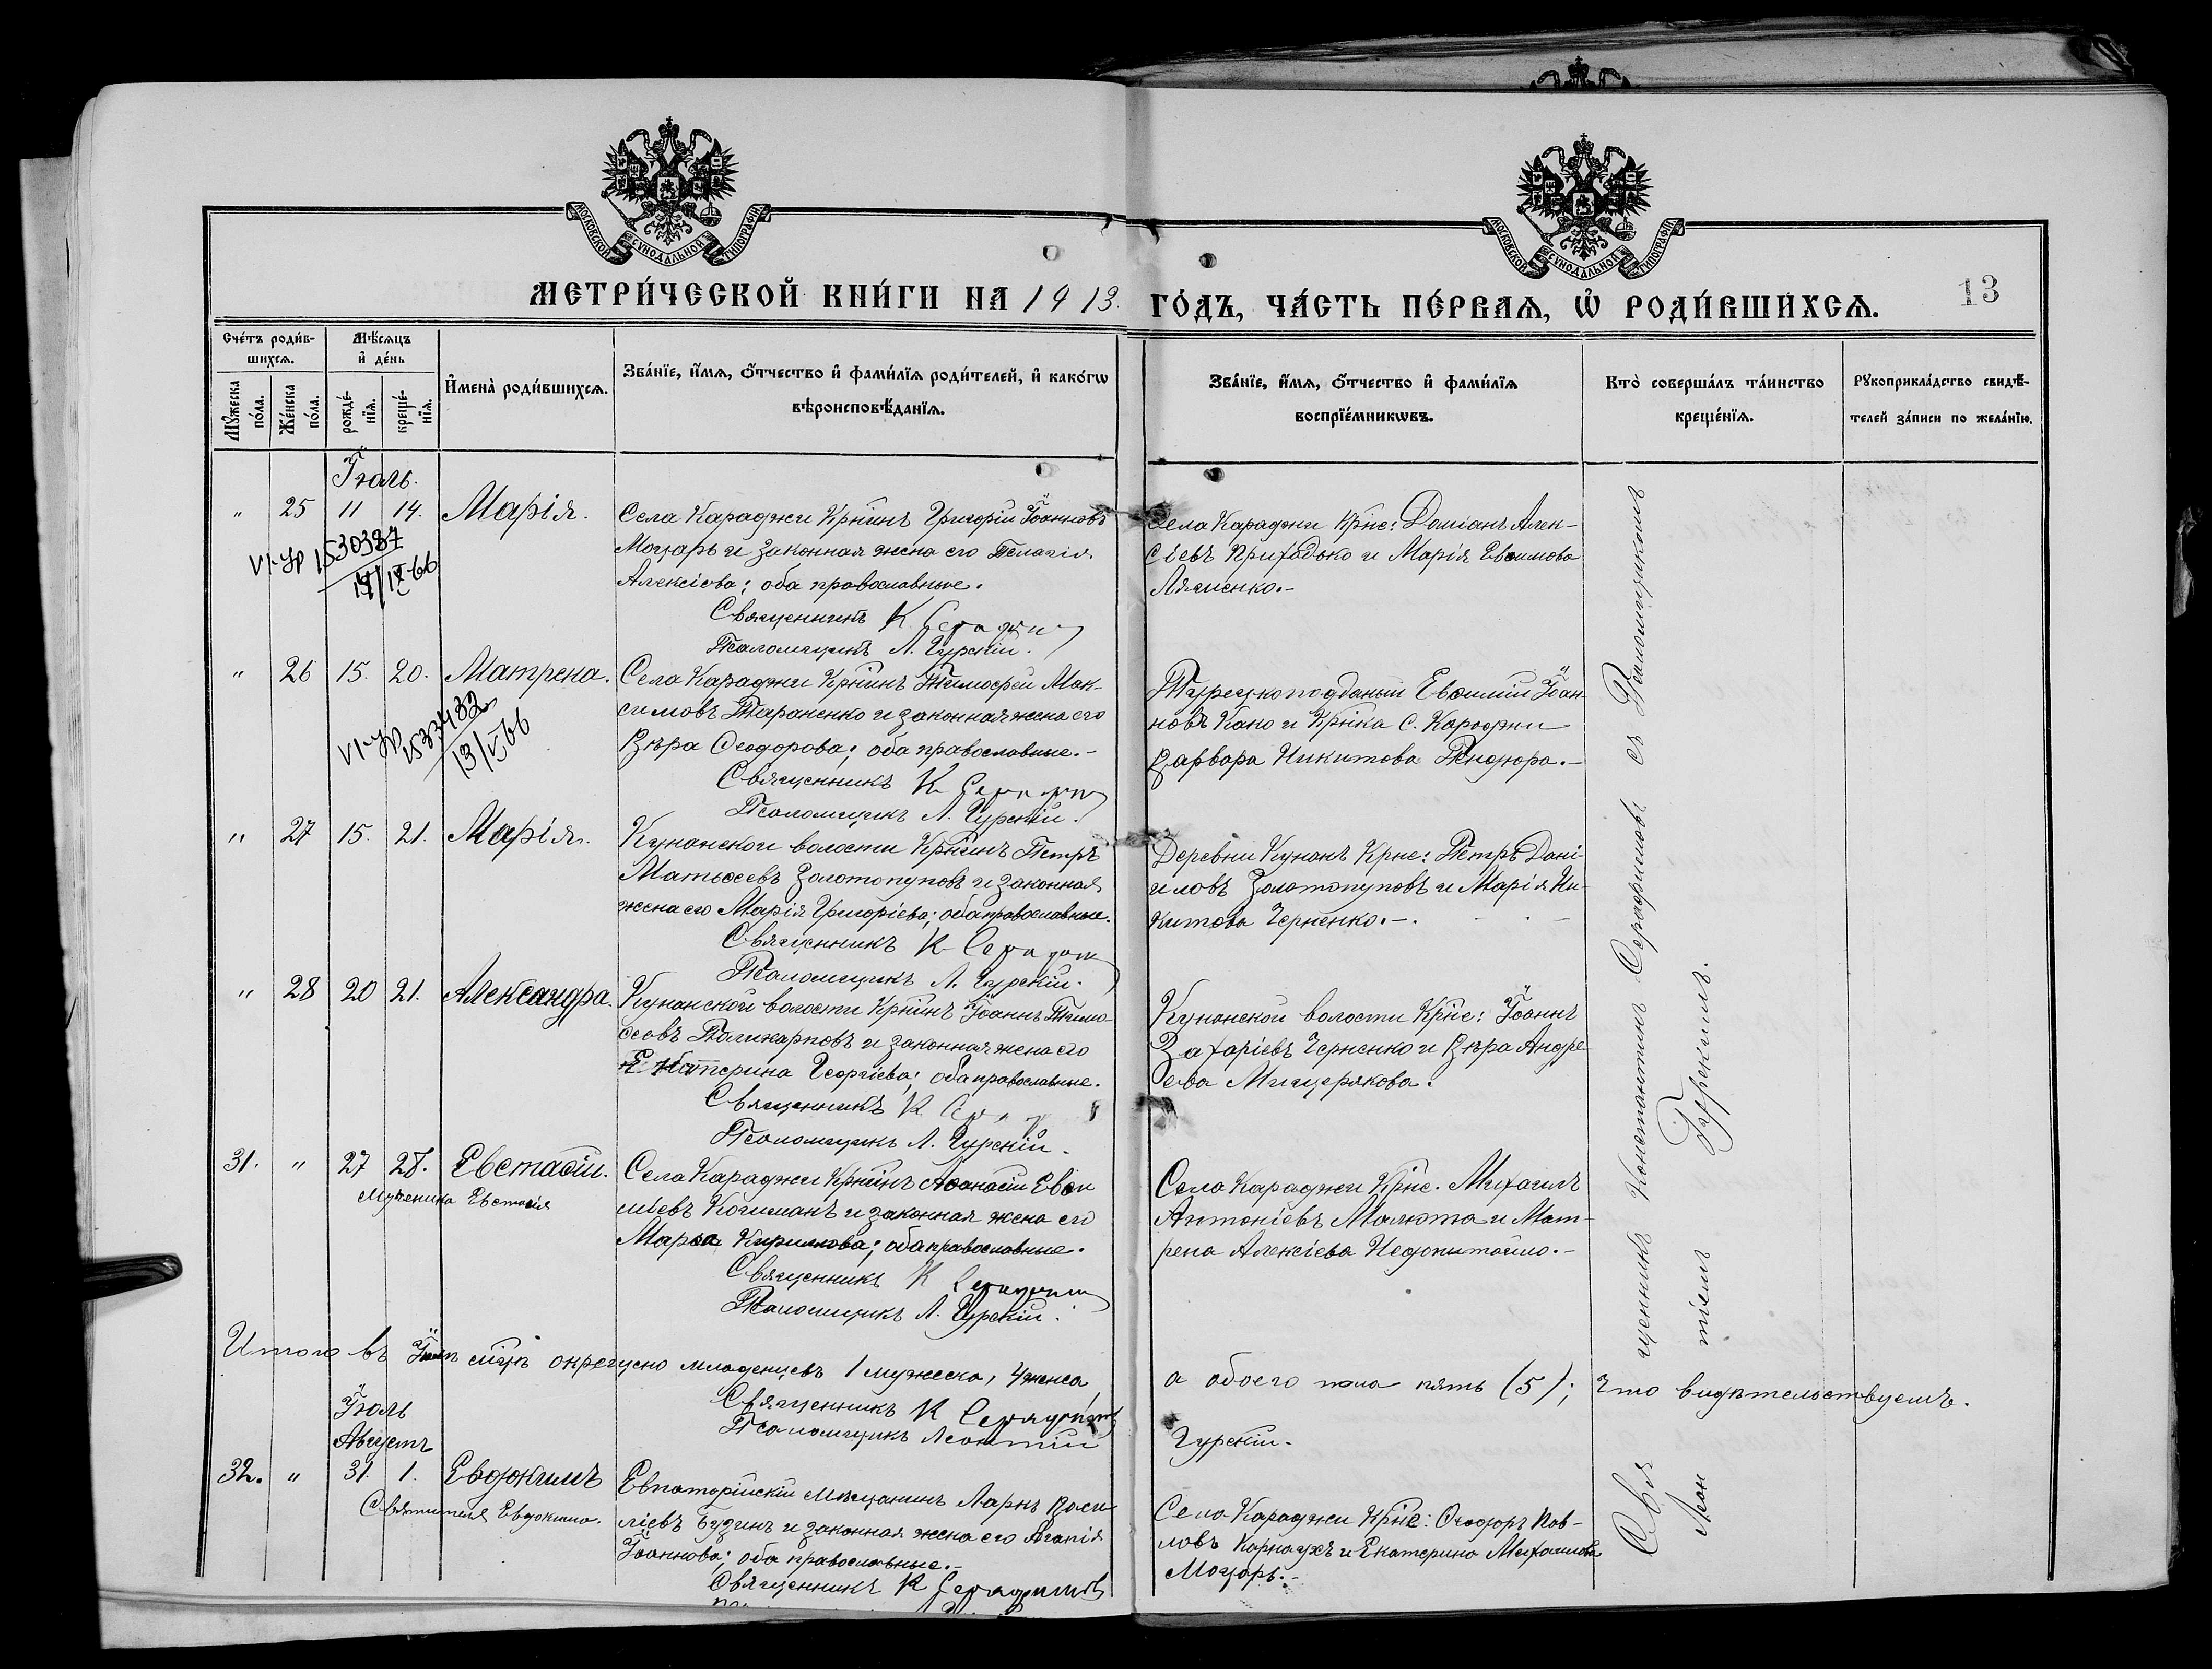 МОСКОВСКОЙ СѴНОДАЛЬНОЙ ТИПОГРАФІИ
МОСКОВСКОЙ СѴНОДАЛЬНОЙ ТИПОГРАФІИ
МЕТРИ́ЧЕСКОЙ КНИ́ГИ НА 1913. ГО́ДЪ, ЧА́СТЬ ПЕ́РВАѦ, Ѡ҆ РОДИ́ВШИХСѦ.
13
Сче́тъ роди́в-
шихсѧ.
Мѣ́сѧцъ
и҆ де́нь
Мꙋ́жеска
по́ла.
Же́нска
по́ла.
рожде́-
нїѧ.
креще́-
нїѧ.
И҆мена̀ роди́вшихсѧ.
Зва́нїе, и҆́мѧ, ѻ҆́тчество и҆ фами́лїѧ роди́телей, и҆ како́гѡ
вѣроисповѣ́данїѧ.
Зва́нїе, и҆́мѧ, ѻ҆́тчество и҆ фами́лїѧ
воспрїе́мникѡвъ.
Кто̀ соверша́лъ та́инство
креще́нїѧ.
Рꙋкоприкла́дство свидѣ́-
телей за́писи по жела́нїю.
Іюль.
" 25 11 14. Марія.
Села Караджи Кр̃нинъ Григорій Іоанновъ
Моцарь и законная жена его Пелагія
Алексіева; оба православные.
Священникъ К Серафим
Псаломщикъ Л. Гурскій.
Села Караджи Кр̃не: Доміанъ Алек-
сіевъ Прихадько и Марія Евѳимова
Ляшенко.-
VI-ЯР 1530387
" 26 15. 20. Матрена.
Села Караджи Кр̃нинъ Тимоѳей Мак-
симовъ Тараненко и законная жена его
Вѣра Ѳеодорова; оба православные.-
Священникъ К Серафим
Псаломщикъ Л. Гурскій.
Турецкоподданый Евѳимій Іоан-
новъ Како и Кр̃нка с. Караджи
Варвара Никитова Тендюра.-
13/V 66
" 27 15. 21. Марія.
Кунанской волости Кр̃нинъ Петръ
Матѳеевъ Золотопуповъ и законная
жена его Марія Григоріева; оба православные.
Священникъ К Серафим
Псаломщикъ Л. Гурскій.
Деревни Кунанъ Кр̃не: Петръ Дані-
иловъ Золотопуповъ и Марія Ни-
китова Черненко.-.
" 28 20 21. Александра.
Кунанской волости Кр̃нинъ Іоаннъ Тимо
ѳеевъ Паликарповъ и законная жена его
Екатерина Георгіева; оба православные.
Священникъ К
Псаломщикъ Л. Гурскій.
Кунанской волости Кр̃не: Іоаннъ
Захаріевъ Черненко и Вѣра Андре-
ева Мищерякова.
31. " 27 28. Евстаѳій.
Мученика Евстаѳія
Села Караджи Кр̃нинъ Аѳанасій Евѳи
міевъ Когиманъ и законная жена его
Марѳа Кирилова; оба православные.
Священникъ К Серафим
Псаломщикъ Л. Гурскій.
Села Караджи Кр̃не. Михаилъ
Антоніевъ Малюта и Мат-
рена Алексіева Недопитайло.-
Итого въ Іюлѣ мѣцѣ окрещено младенцевъ 1 мужеска, 4 женска, а обоего пола пять (5); что видѣтельствуемъ.
Священникъ К Серафимовъ
Псаломщикъ Леонтій Гурскій.
Іюль
Августъ
32. " 31. 1. Евдокимъ
Святителя Евдокима.
Евпаторійскій мѣщанинъ Ларіъ Васи
ліевъ Бузинъ и законная жена его Агапія
Іоаннова; оба православные.-
Священникъ К Серафимовъ
Села Караджи Кр̃не: Ѳеодоръ Пав-
ловъ Карнаухъ и Екатерина Михаилова
Моцарь.-
Священникъ Константинъ Серафимовъ съ Псаломщикомъ
Леонтіемъ Гурскимъ.